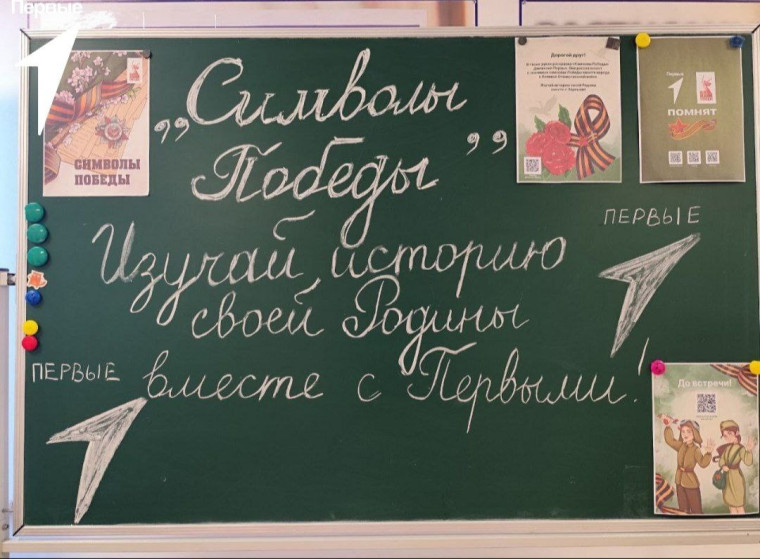 Первые
СИМВОЛЫ
ПОБЕДЫ
Дорогой друг!
Первые
ПОМНЯТ
„Символы
Победы”
ПЕРВЫЕ
Изучай историю
своей Родины
ПЕРВЫЕ
вместе с Первыми!
До встречи!